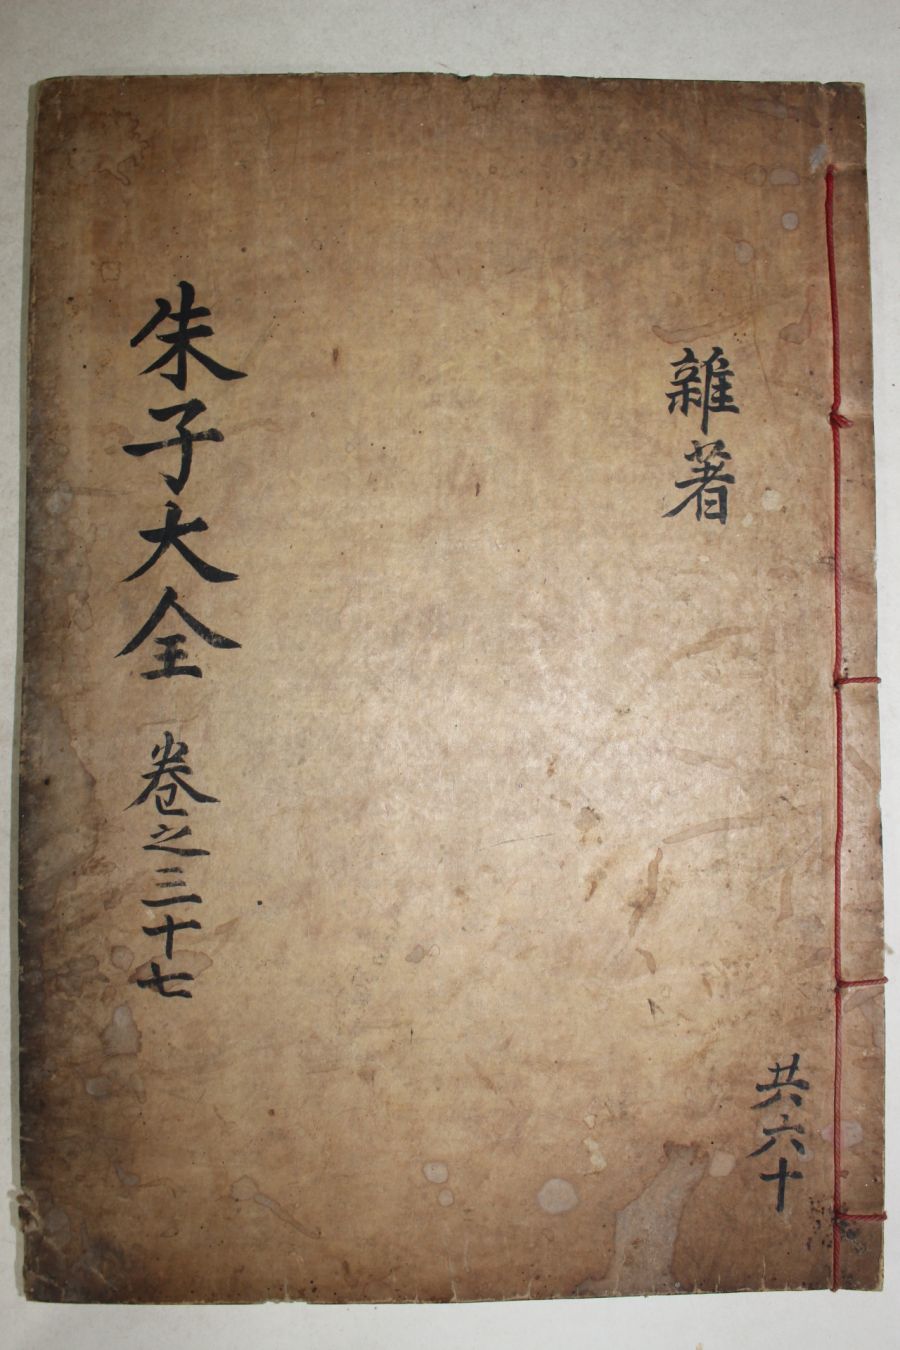 雜著
朱子大全 卷之三十七
共六十